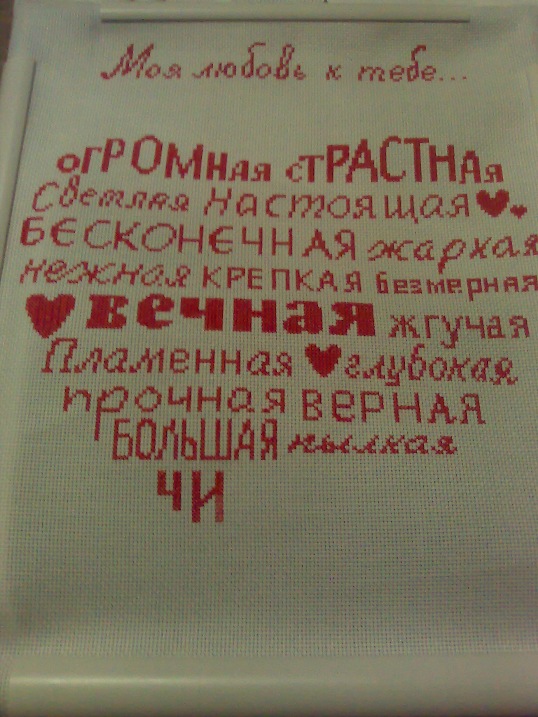 Моя любовь к тебе...
огРОМНая сТРАСТНАя
Светлая Настоящая
БЕСКОНЕЧНАЯ жаркая
нежная КРЕПКАЯ безмерная
вечная жгучая
Пламенная глубокая
прочная ВЕРНАЯ
БОЛЬШАЯ пылкая
ЧИ